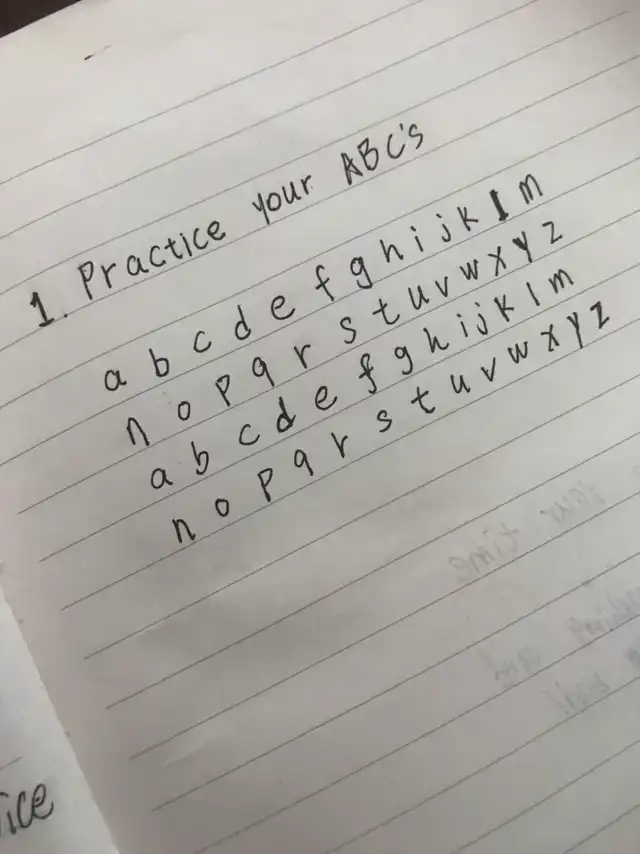 1. Practice your ABC's
a b c d e f g h i j k l m
n o p q r s t u v w x y z
a b c d e f g h i j k l m
n o p q r s t u v w x y z
your time
and